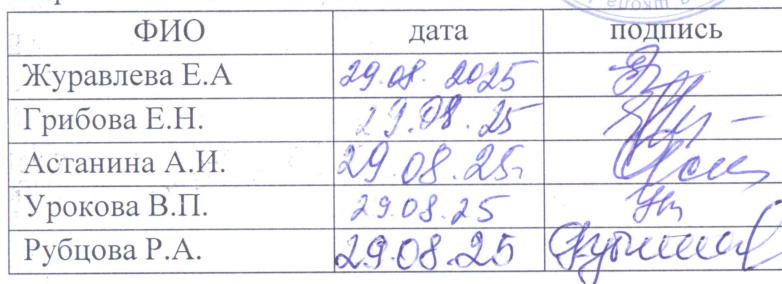 ФИО дата подпись
Журавлева Е.А 29.08.2025
Грибова Е.Н. 29.08.25
Астанина А.И. 29.08.25.
Урокова В.П. 29.08.25
Рубцова Р.А. 29.08.25